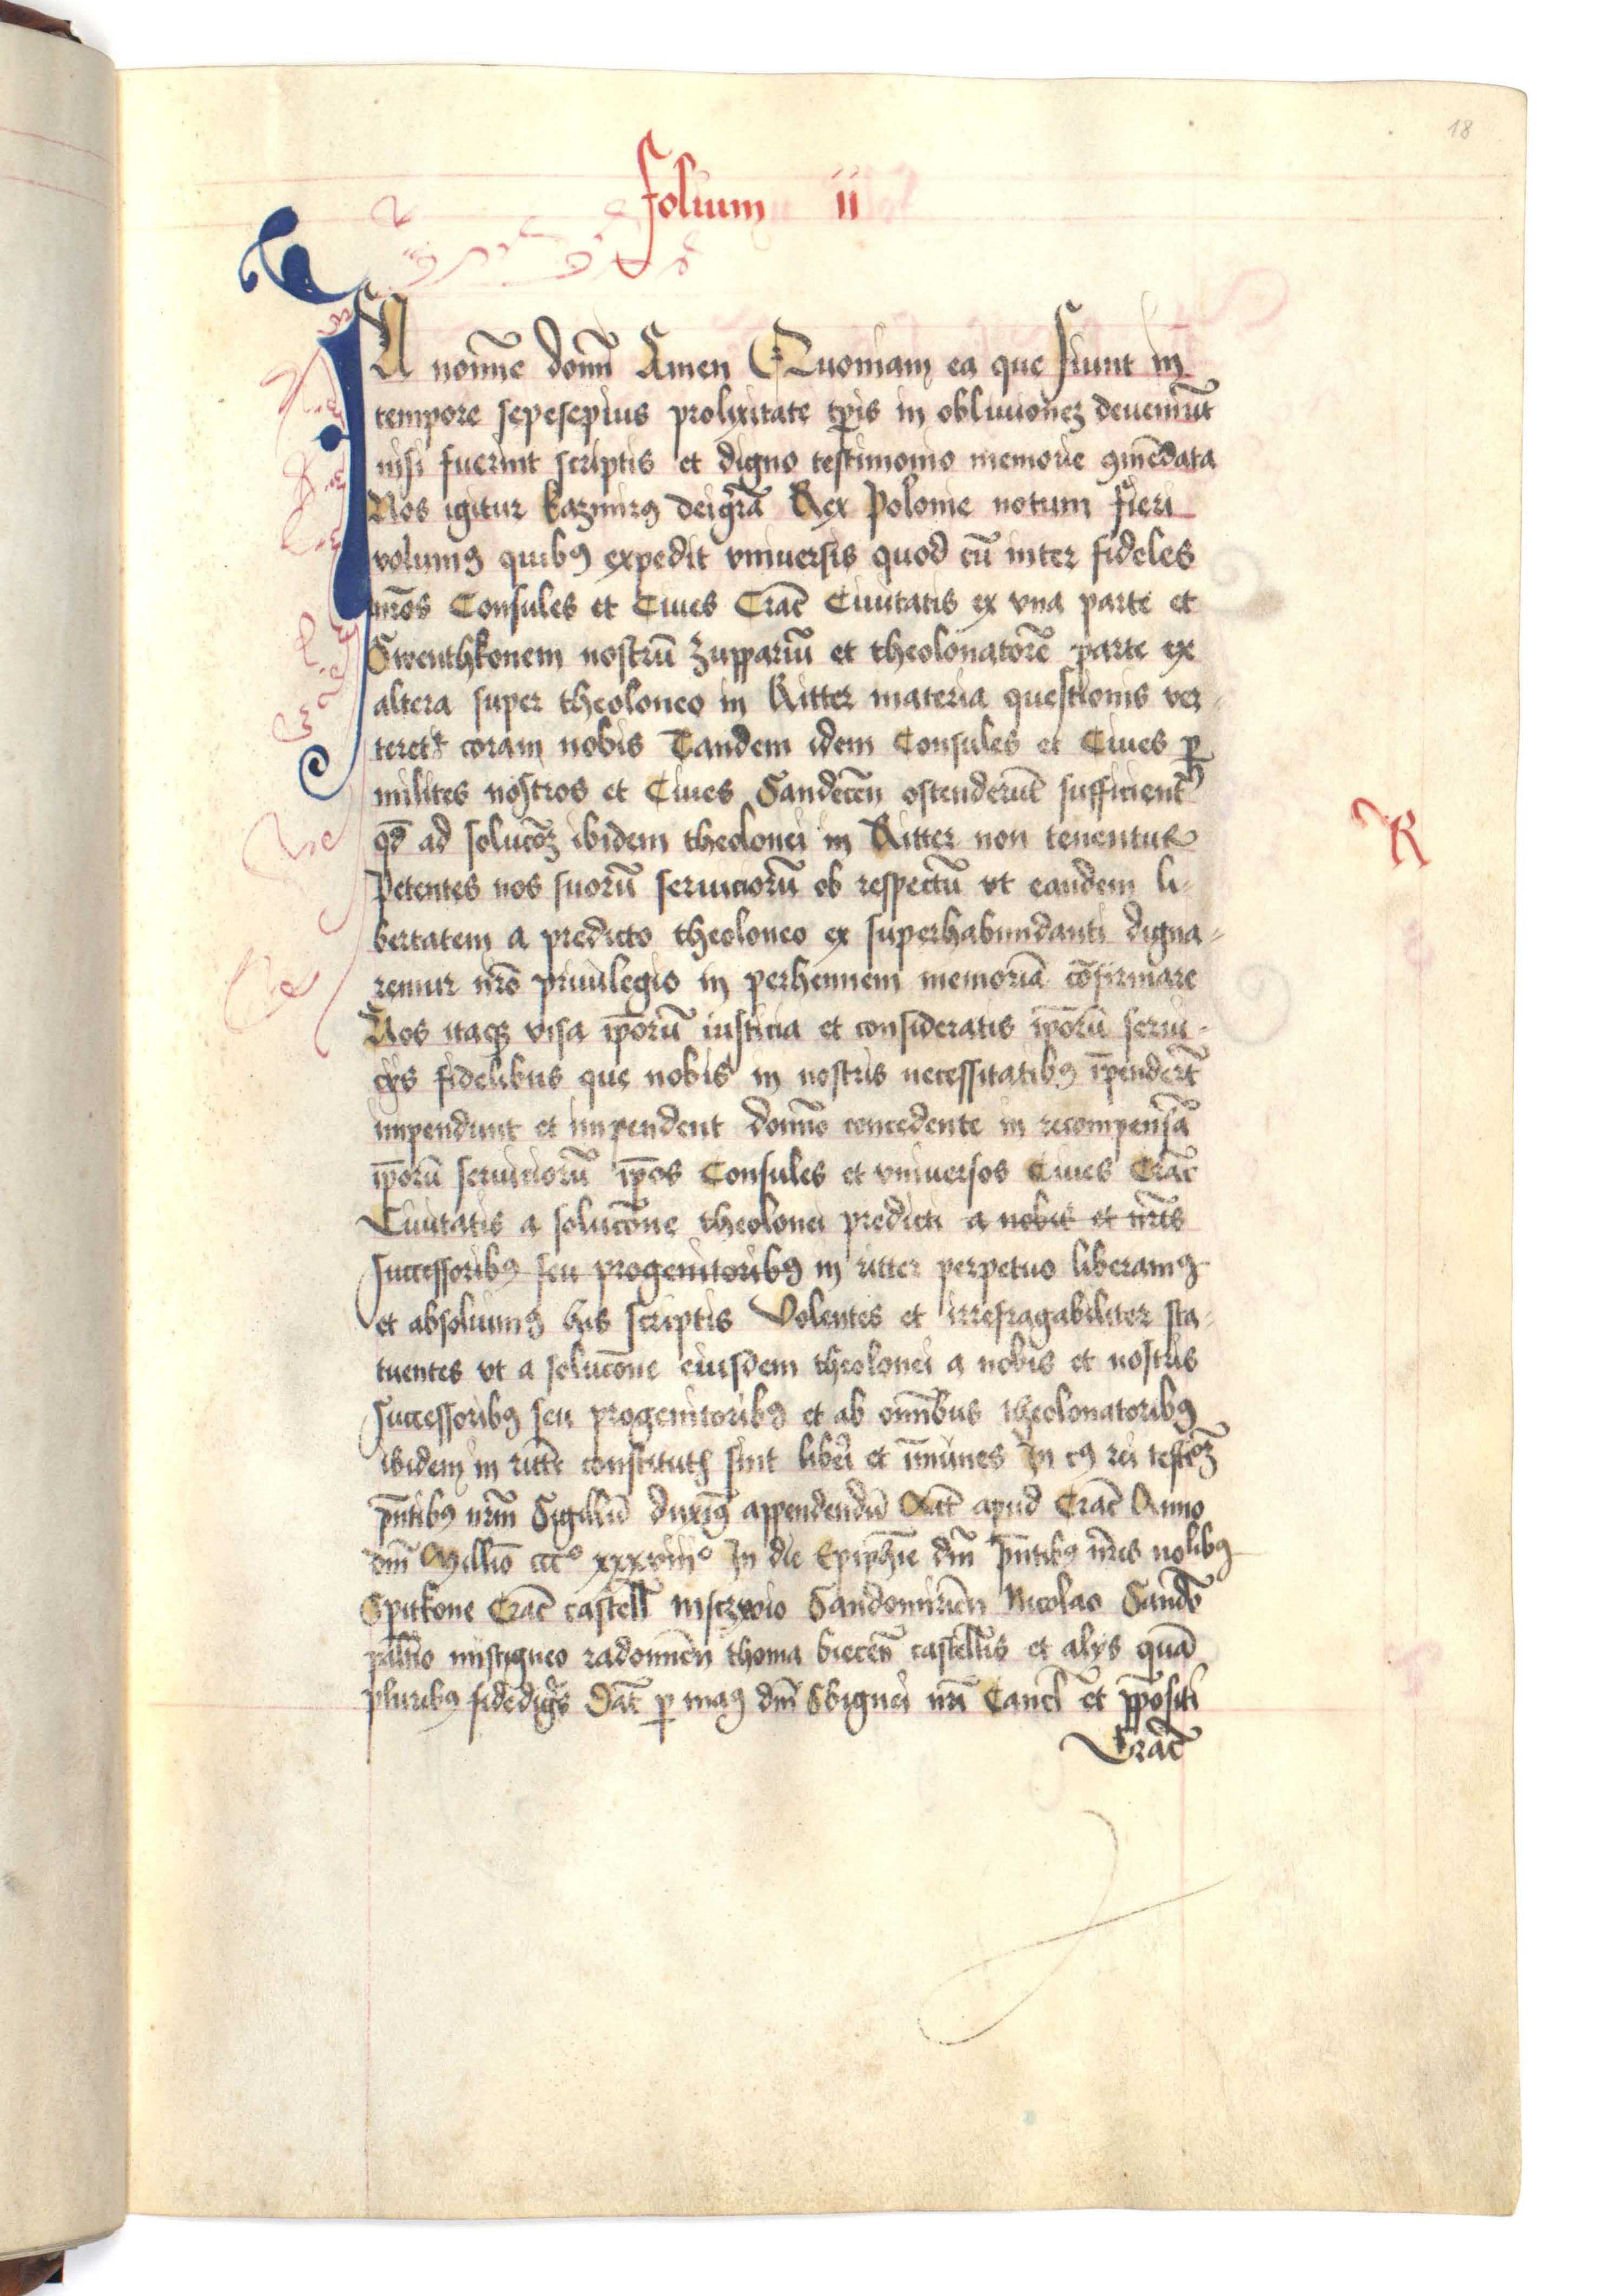 18
folium ii
IN noīne domī Amen Quoniam ea que fiunt in
tempore sepesepius prolixitate tp̄is in obliuionez deueniūt
nisi fuerint scriptis et digno testimonio memorie ꝯmēdata
Nos igitur kazmirꝰ dei gr̄a Rex Polonie notum fieri
volumꝰ quibꝰ expedit vniuersis quod cū inter fideles
nr̄os Consules et Ciues Crac̄ Ciuitatis ex vna parte et
Swenthkonem nostrū zuppariū et theolonatorē parte ex
altera super theoloneo in Ritter materia questionis ver-
teret᷑ coram nobis Tandem idem Consules et Ciues ꝑ
milites nostros et Ciues Sandecēn ostenderūt sufficient᷑
qd̄ ad solucōꝫ ibidem theolonei in Ritter non tenentur
Petentes nos suorū seruiciorū ob respectū vt eandem li-
bertatem a predicto theoloneo ex superhabundanti digna-
remur nr̄o priuilegio in perhennem memoriā cōfirmare
Nos itaqꝫ visa ip̄orū iusticia et consideratis ip̄orū serui-
cijs fidelibus que nobis in nostris necessitatibꝰ īpendert̄
impendunt et impendent domīo concedente in recompensā
ip̄orū seruiciorū ip̄os Consules et vniuersos Ciues Crac̄
Ciuitatis a solucōne theolonei predicti a nobis et nr̄is
successoribꝰ seu progenitoribꝰ in ritter perpetuo liberamꝰ
et absoluimꝰ his scriptis Volentes et irrefragabiliter sta-
tuentes vt a solucōne eiusdem theolonei a nobis et nostris
successoribꝰ seu progenitoribꝰ et ab omībus theolonatoribꝰ
ibidem in ritt̄e constitutꝭ sint libe᷑i et īmunes In cꝰ rei testi̅oꝫ
pn̄tibꝰ nrm̄ Sigillū duximꝰ appendendū Act̄ apud Crac̄ Anno
dnī Millīo ccc° xxxviii° In die Epiphīe dnī pn̄tibꝰ nr̄is nolibꝰ
Spitkone Crac̄ castell̄ msczwio Sandomiriēn Nicolao Sand̄
pal̄tīo mistigneo radomiēn thoma biecēn castell̄is et alijs quā
pluribꝰ fidedigīs Dat̄ ꝑ manꝰ dnī Sbignei nr̄i Canc̄l et p̄positi
Crac̄
R